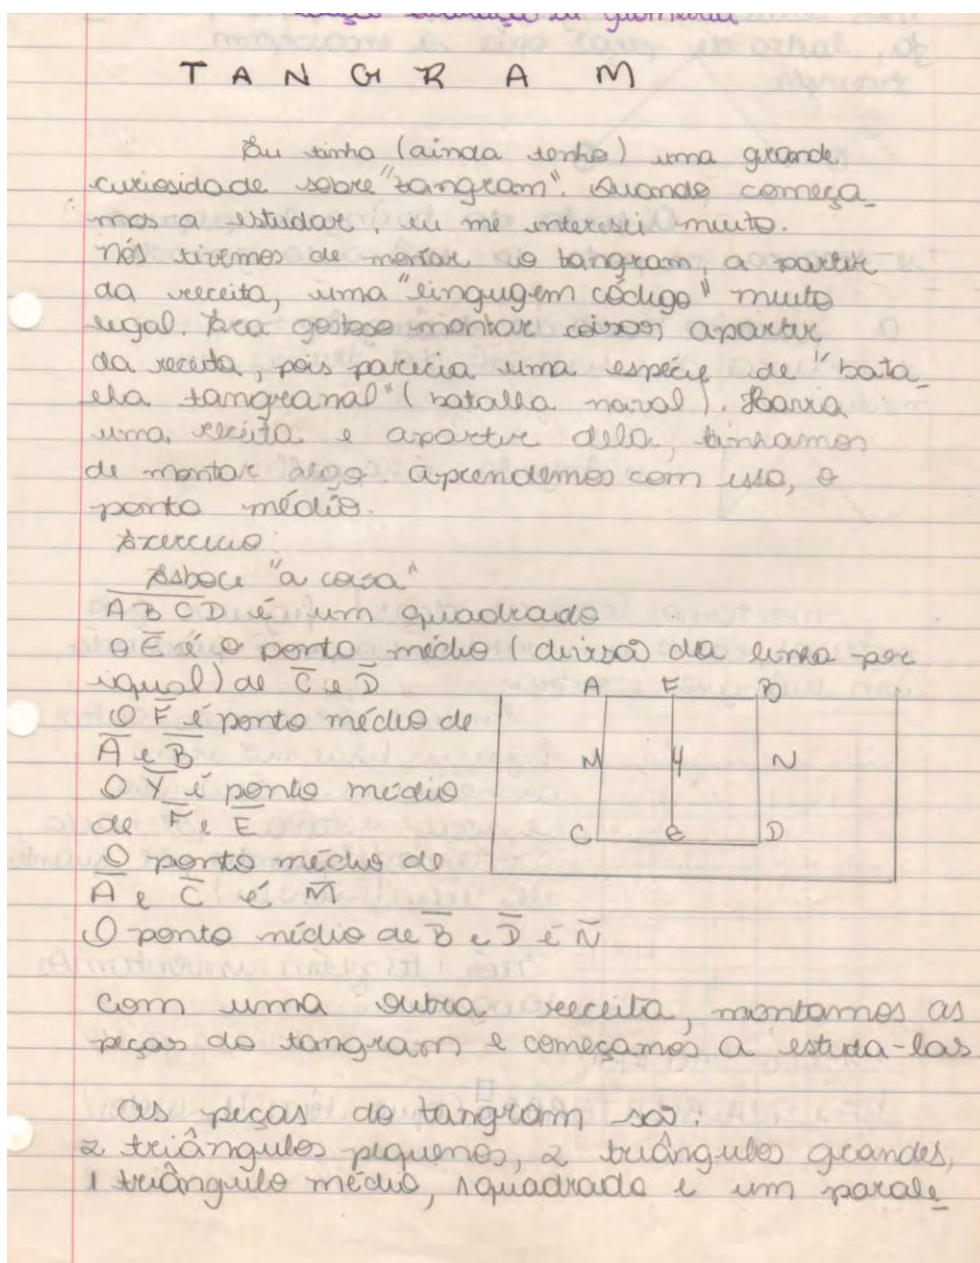 geometria
TANGRAM
Eu tinha (ainda tenho) uma grande
curiosidade sobre "tangram". Quando começa_
mos a estudar, eu me interesei muito.
Nós tivemos de montar o tangram, a partir
da receita, uma "lingugem código" muito
legal. Era gostoso montar coisas apartir
da receita, pois parecia uma espécie de "bata_
lha tangranal" (batalha naval). Havia
uma receita e apartir dela, tinhamos
de montar algo. Aprendemos com isso, o
ponto médio.
Exercicio:
Esboce "a casa"
ABCD é um quadrado
O E é o ponto médio (divisão da linha por
igual) de C e D
O F é ponto médio de
A e B
O Y é ponto médio
de F e E
O ponto médio de
A e C é M
O ponto médio de B e D é N
A F B
M Y N
C e D
com uma outra receita, montamos as
peças do tangram e começamos a estuda-las
As peças do tangram são:
2 triângulos pequenos, 2 triângulos grandes,
1 triângulo médio, 1 quadrado e um parale_